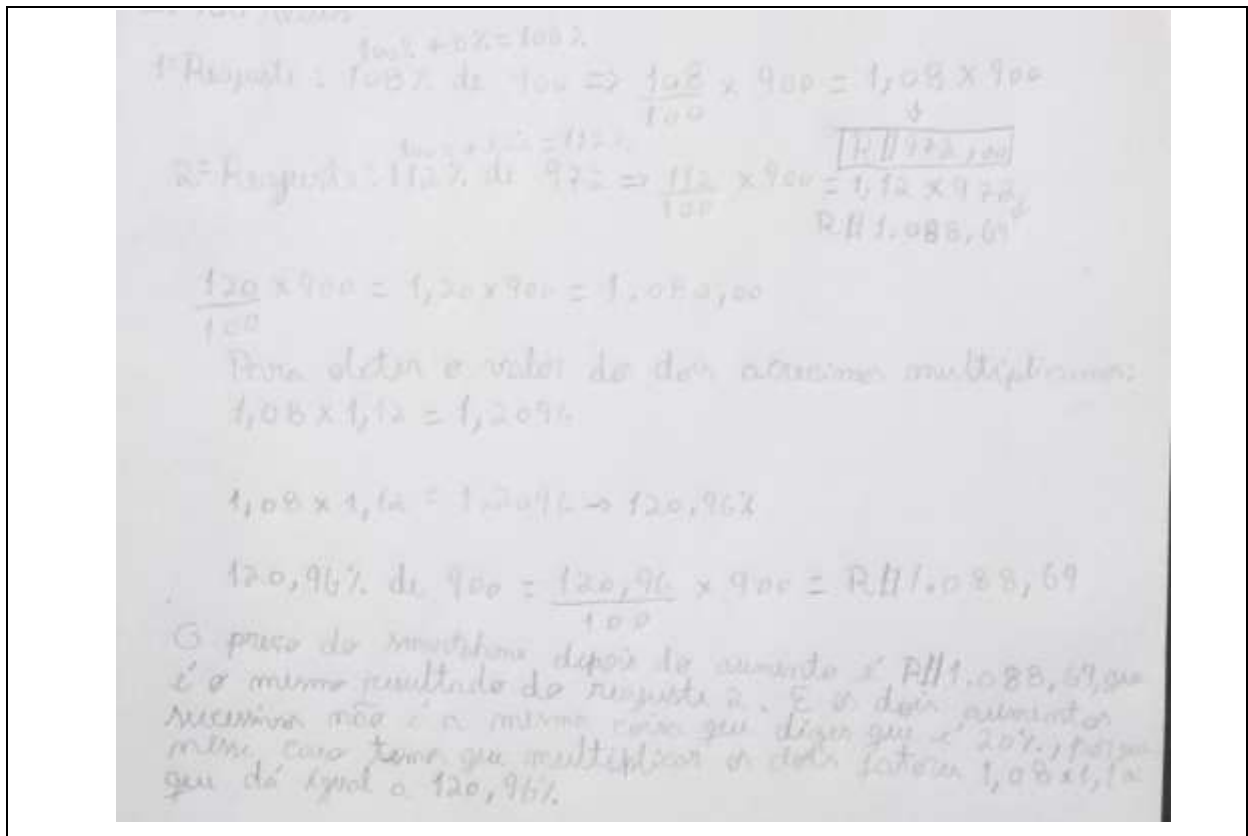 100% + 8% = 108%
1º Reajuste : 108% de 900 => 108/100 x 900 = 1,08 x 900
↓
R$ 972,00
100% + 12% = 112%
2º Reajuste : 112% de 972 => 112/100 x 900 = 1,12 x 972
R$ 1.088,69
120/100 x 900 = 1,20 x 900 = 1.080,00
Para obter o valor do dois acrescimos multiplicamos:
1,08 x 1,12 = 1,2096
1,08 x 1,12 = 1,2096 → 120,96%
120,96% de 900 = 120,96/100 x 900 = R$ 1.088,69
O preço do smartphone depois do aumento é R$ 1.088,69, que
é o mesmo resultado do reajuste 2. E os dois aumentos
sucessivos não é a mesma coisa que dizer que é 20%, porque
nesse caso temos que multiplicar os dois fatores 1,08 x 1,12
que dá igual a 120,96%.